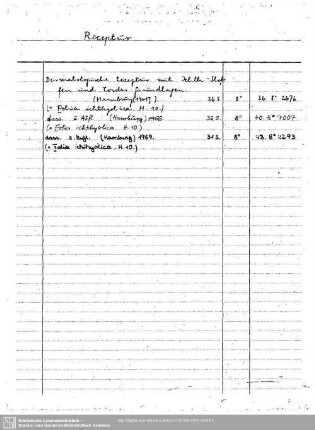 Receptur
Dermatologische Receptur mit Ichth.-Stof-
fen und Cordes-Grundlagen.
(Hamburg). 36 S. 8° 36. 8° 2676
(= Folia ichthyolica. H. 10.)
dass. 2. Aufl. (Hamburg) 32 S. 8° 40. 8° 7007
(= Folia ichthyolica H. 10.)
dass. 3. Aufl. (Hamburg) 1969. 32 S. 8° 43. 8° 4293
(= Folia ichthyolica. H. 10.)
Sächsische Landesbibliothek -
Staats- und Universitätsbibliothek Dresden